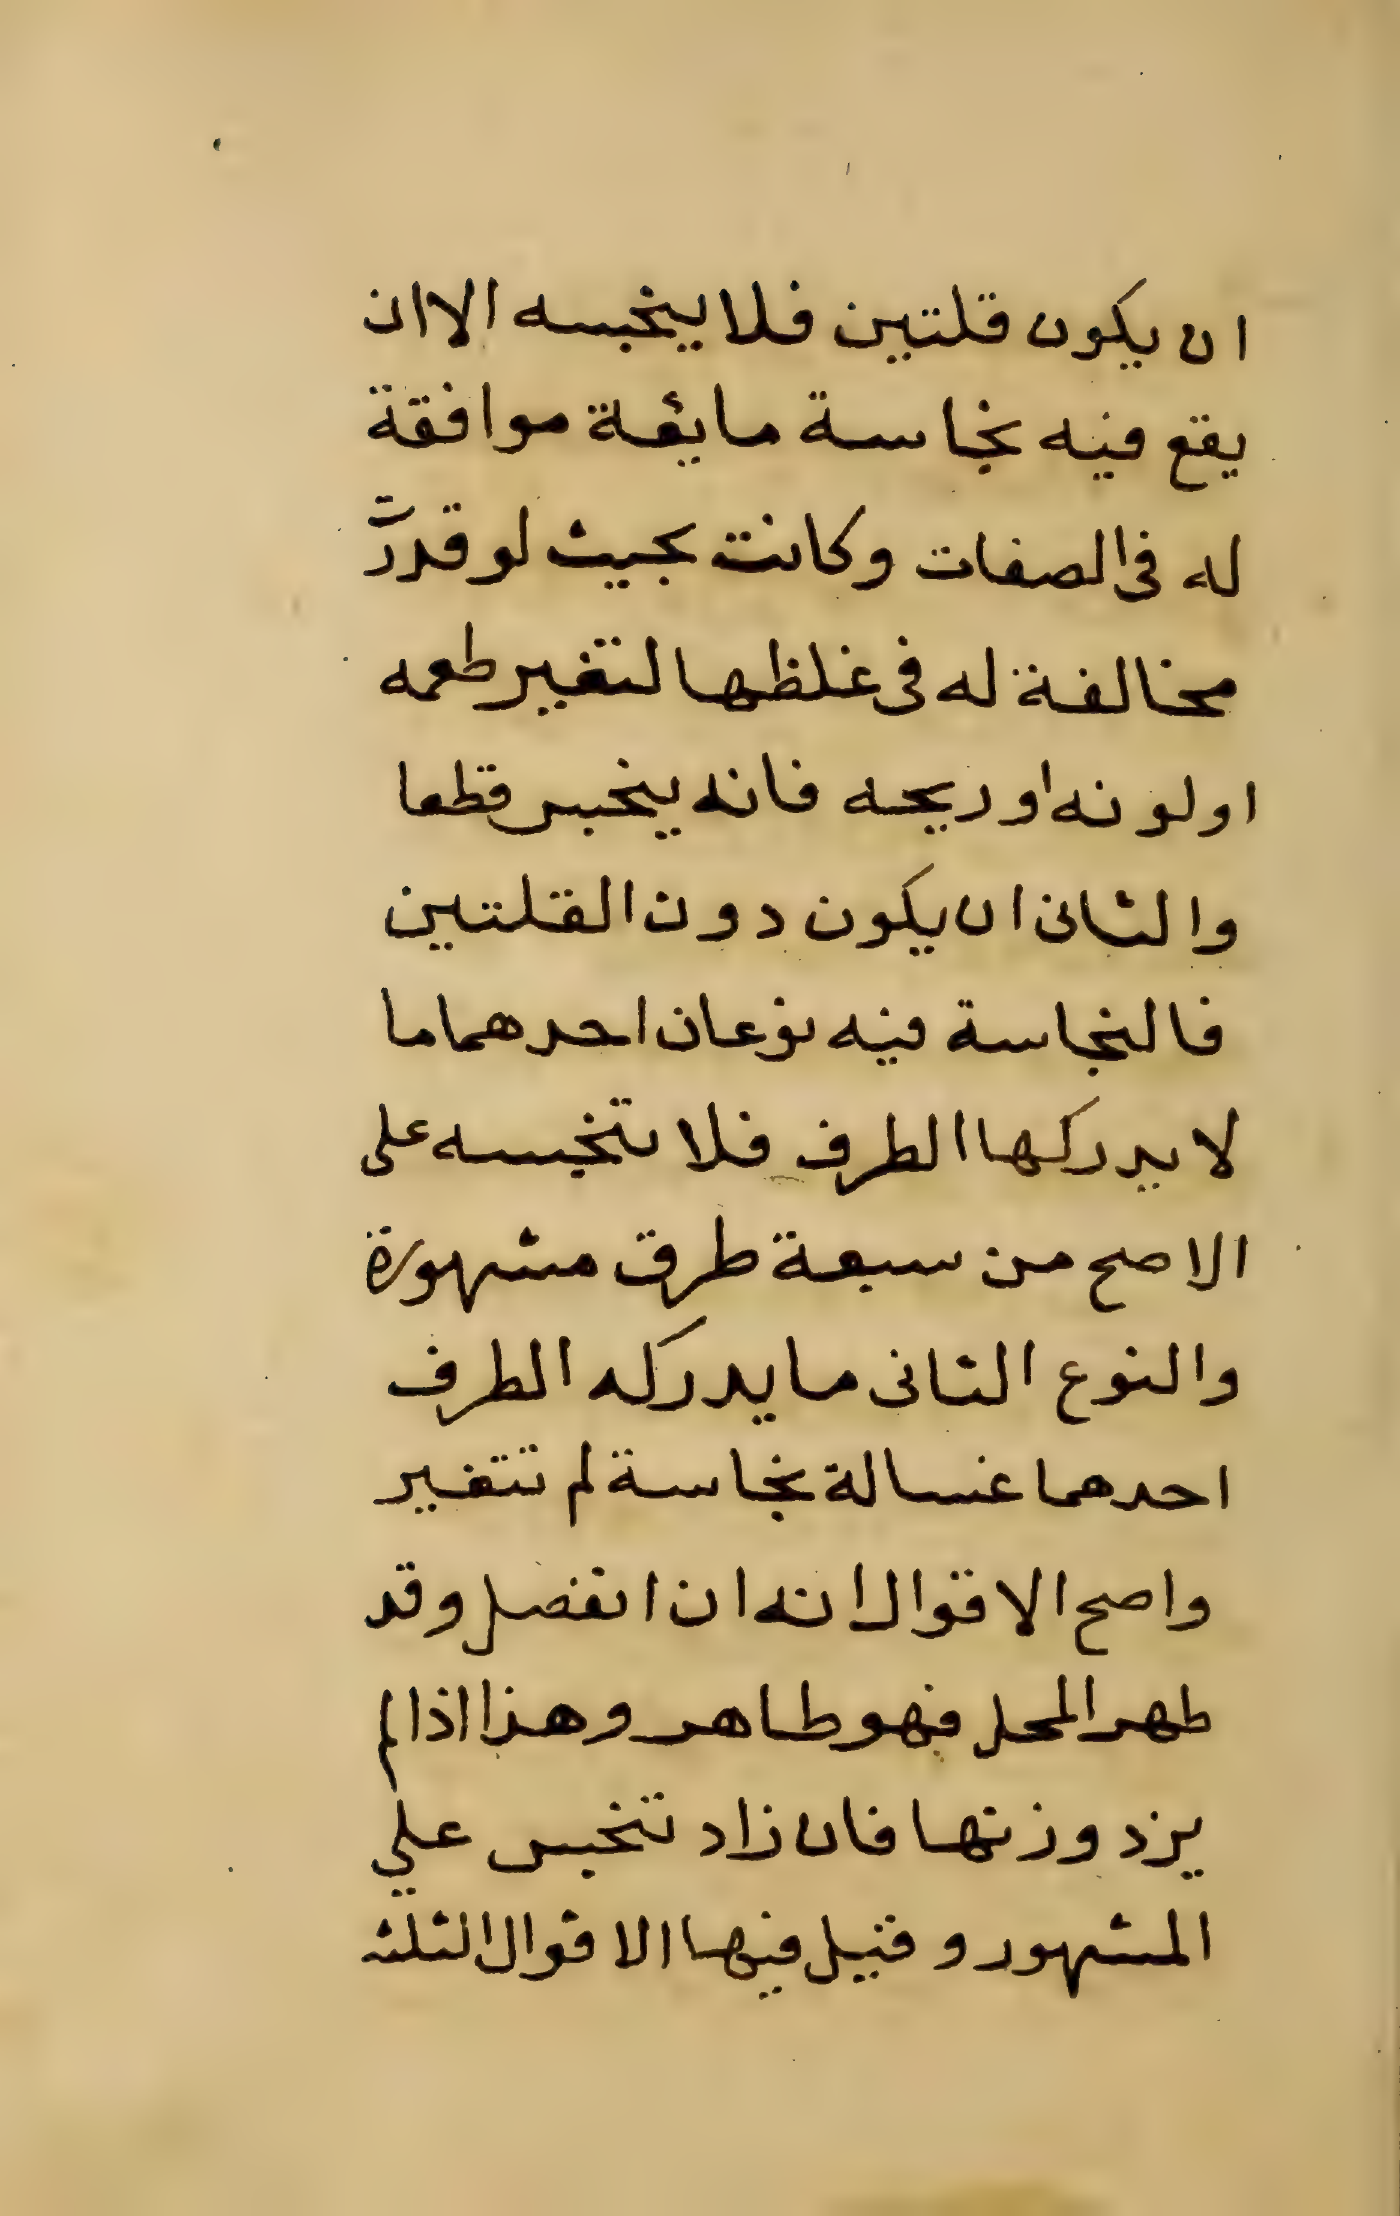 ان يكون قلتين فلا ينجسه الا ان
يقع فيه نجاسة مايعة موافقة
له فى الصفات وكانت بحيث لو قدرت
مخالفة له فى غلظها لتغير طعمه
او لونه او ريحه فانه ينجس قطعا
والثانى ان يكون دون القلتين
فالنجاسة فيه نوعان احدهما ما
لا يدركها الطرف فلا تنجسه على
الاصح من سبعة طرق مشهورة
والنوع الثانى ما يدركه الطرف
احدهما غسالة نجاسة لم تتغير
واصح الاقوال انه ان انفصل وقد
طهر المحل فهو طاهر وهذا اذا لم
يزد وزنها فان زاد تنجس علي
المشهور و قيل فيها الاقوال الثلثه